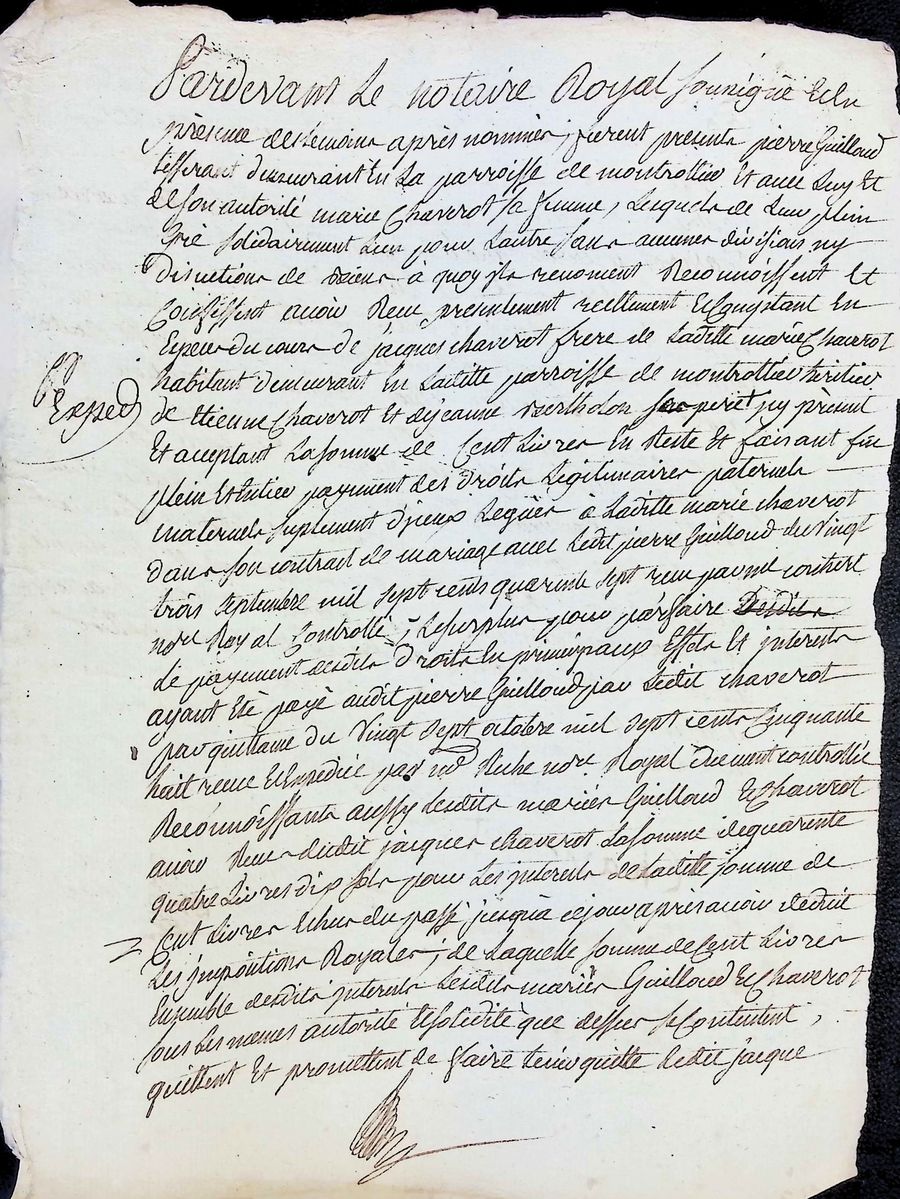 Pardevant Le notaire Royal soussigné Et En
présence des témoins après nommés, furent présents pierre Guilloud
tisserant demeurant En La parroisse de montrottier Et avec Luy Et
de son autorité marie Chaverot sa femme, Lesquels de Leur plein
Gré solidairement L'un pour L'autre sans aucunes divisions ny
discutions de biens à quoy ils renoncent Reconnoissent Et
Confessent avoir Reçu presentement réellement Et Comptant En
Especes du cours de jacques chaverot frere de Laditte marie Chaverot
habitant demeurant En Laditte parroisse de montrottier héritier
Exped
de Etienne Chaverot Et de jeanne Bertholon ses pere icy présent
Et aceptant La somme de Cent Livres En Reste Et faisant fin
plein Et Entier payement des droits Légitimaires paternels
maternels suplement d'iceux Légués à Laditte marie chaverot
dans son contract de mariage avec Ledit pierre Guilloud du Vingt
trois septembre mil sept cents quarente sept reçu par
nore Royal Controllé, Le surplus pour parfaire
de payement desdits droits En principaux Effets Et interets
ayant Eté payé audit pierre Guilloud par Ledit chaverot
par quittance du Vingt sept octobre mil sept cents Cinquante
huit reçue Et Expediée par nore Royal duement controllée
Reconnoissants aussy Lesdits mariés Guilloud Et Chaverot
avoir Reçu dudit jacques chaverot La somme de quarente
quatre Livres dix sols pour Les interets de Laditte somme de
Cent Livres Echus du passé jusqu'à ce jour après avoir déduit
Les impositions Royales; de Laquelle somme de Cent Livres
Ensemble desdits interets Lesdits mariés Guilloud Et Chaverot
sous Les mêmes autorité Et solidité que dessus se Contentent,
quittent Et promettent de faire tenir quitte Ledit jacque